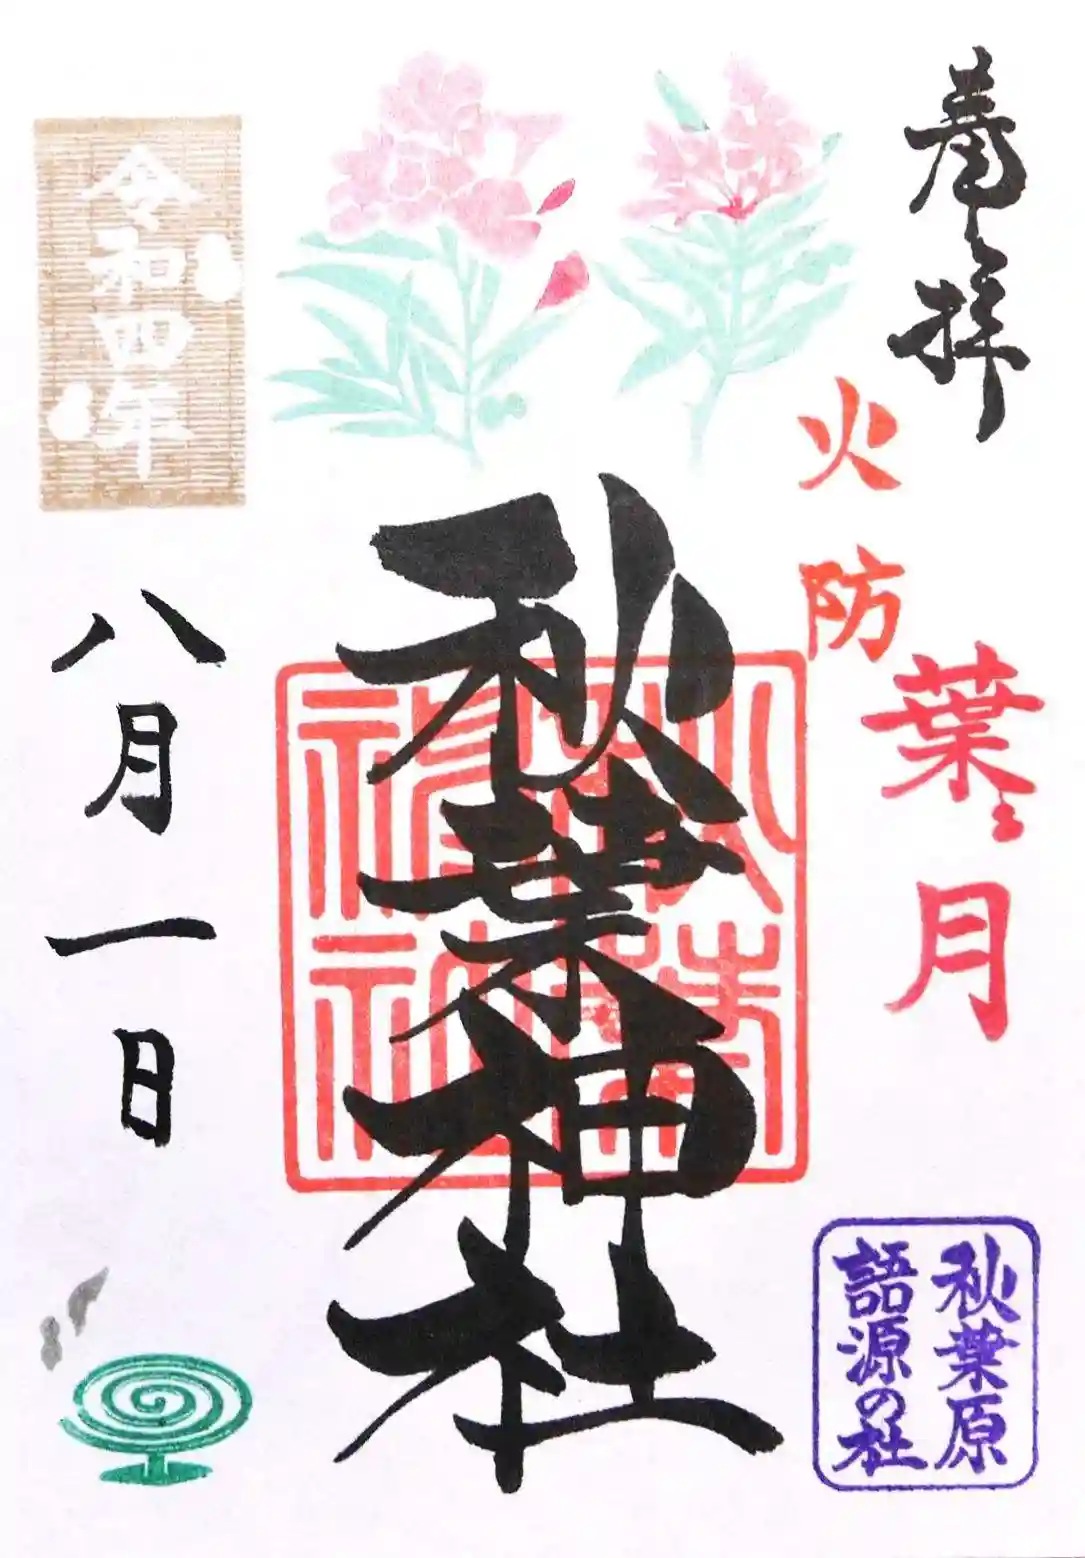 奉拝
火防
葉月
秋葉神社
秋葉神社
令和四年
八月一日
秋葉原
語源の社